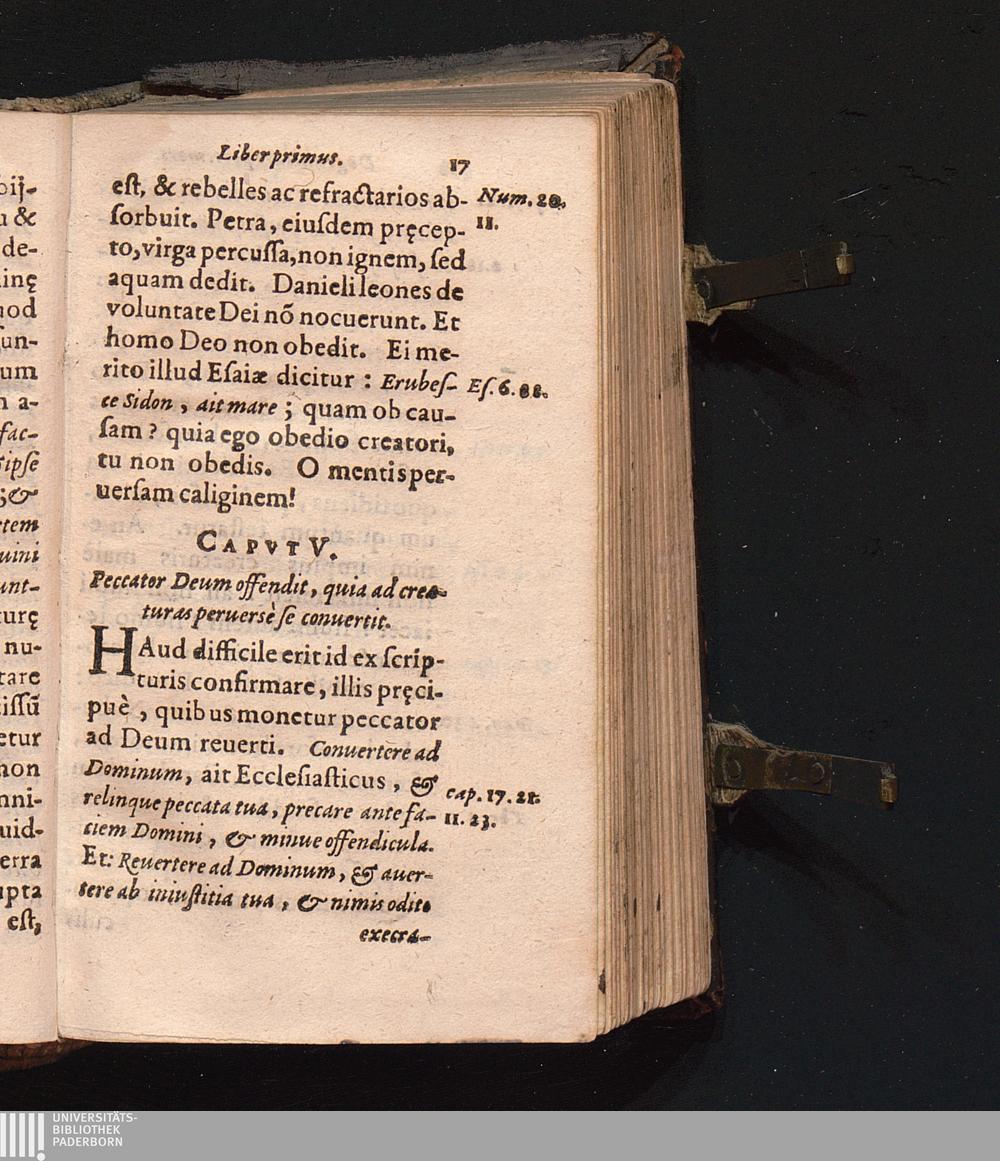 bij-
u &
de-
inę
uod
ſun-
um
n a-
fac-
ſipſe
;&
etem
uini
unt-
turę
nu-
tare
iſſũ
etur
non
nni-
uid-
erra
upta
eſt,
Liber primus. 17
eſt, & rebelles ac refractarios ab-
ſorbuit. Petra, eiuſdem pręcep-
to, virga percuſſa, non ignem, ſed
aquam dedit. Danieli leones de
voluntate Dei nõ nocuerunt. Et
homo Deo non obedit. Ei me-
rito illud Eſaiæ dicitur : Erubeſ-
ce Sidon, ait mare ; quam ob cau-
ſam ? quia ego obedio creatori,
tu non obedis. O mentis per-
uerſam caliginem!
Num. 20.
11.
Eſ. 6. 88.
CAPVT V.
Peccator Deum offendit, quia ad crea-
turas peruersè ſe conuertit.
HAud difficile erit id ex ſcrip-
turis confirmare, illis pręci-
puè, quibus monetur peccator
ad Deum reuerti. Conuertere ad
Dominum, ait Eccleſiaſticus, &
relinque peccata tua, precare ante fa-
ciem Domini, & minue offendicula.
Et: Reuertere ad Dominum, & auer-
tere ab iniuſtitia tua, & nimis odito
execra-
cap. 17. 21.
11. 23.
UNIVERSITÄTS-
BIBLIOTHEK
PADERBORN